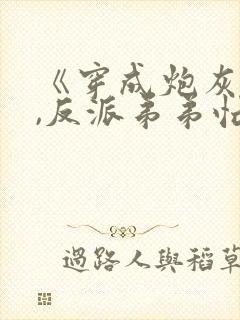 《穿成炮灰
,反派弟弟怕
過路人與稻草